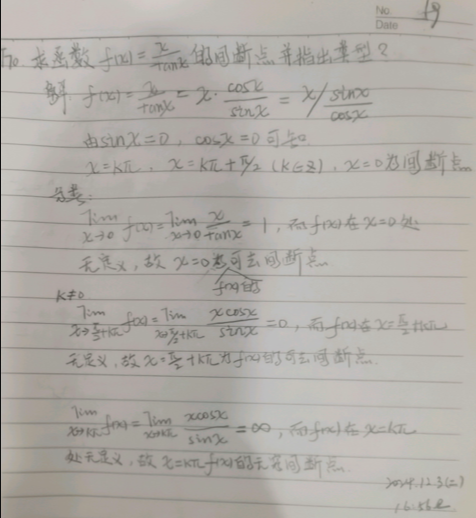 No.
Date
19
70 求函数 f(x) = x/tanx 的间断点并指出类型?
解 f(x) = x/tanx = x · cosx/sinx = x / sinx/cosx
由sinx=0, cosx=0可知
x=kπ, x=kπ+π/2 (k∈Z), x=0为间断点
lim x→0 f(x) = lim x→0 x/tanx = 1, 而f(x)在x=0处
无定义, 故 x=0为可去间断点
f(x)的
k≠0
lim x→π/2+kπ f(x) = lim x→π/2+kπ xcosx/sinx = 0, 而f(x)在x=π/2+kπ
无定义, 故x=π/2+kπ为f(x)的可去间断点
lim x→kπ f(x) = lim x→kπ xcosx/sinx = ∞, 而f(x)在x=kπ
处无定义, 故x=kπ f(x)的无穷间断点.
2024.12.3(二)
16:56